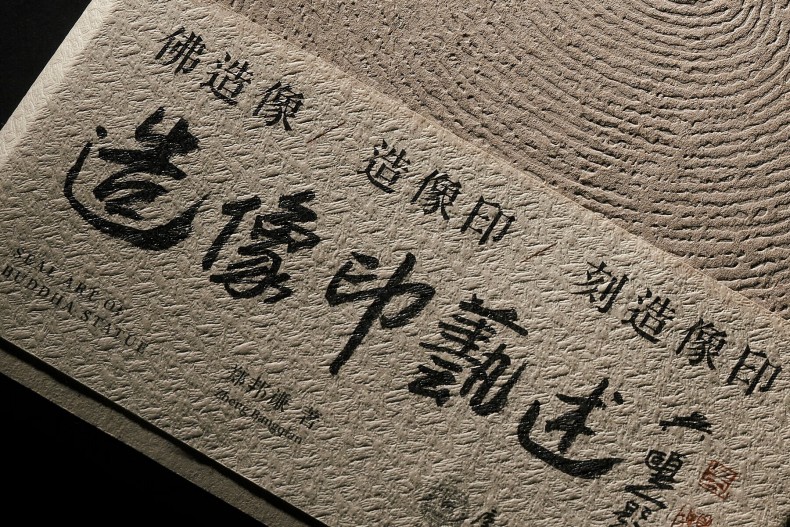 佛造像／造像印／刻造像印
造像印藝述
SEAL ART OF
BUDDHA STATUE
鄭邦謙 著
Zheng Bangqian